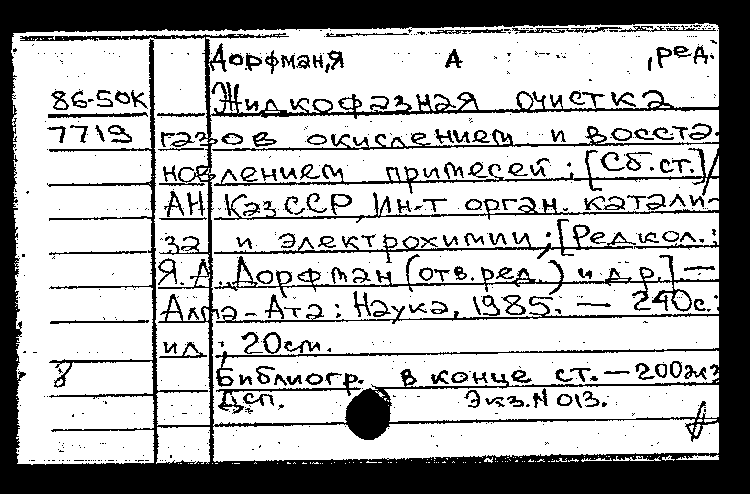 Дорфман, Я А , ред.
86-50К Жидкофазная очистка
7719 газов окислением и восста-
новлением примесей ; [Сб. ст.] /
АН КазССР, Ин-т орган. катали-
за и электрохимии ; [Редкол.:
Я. А. Дорфман (отв. ред.) и др.] —
Алма-Ата : Наука, 1985. — 240с.:
ил ; 20 см.
8 Библиогр. в конце ст. — 200 экз
Дсп. Экз. N 013.